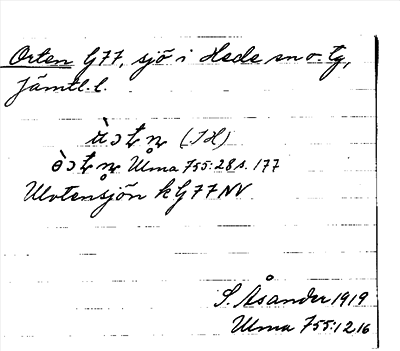 Orten G77, sjö i Hede sn o. tg,
Jämtl. l.
(JH)
Ulma 755:28 s. 177
Ulvtensjön k G77NV
S. Åsander 1919
Ulma 755:12 16